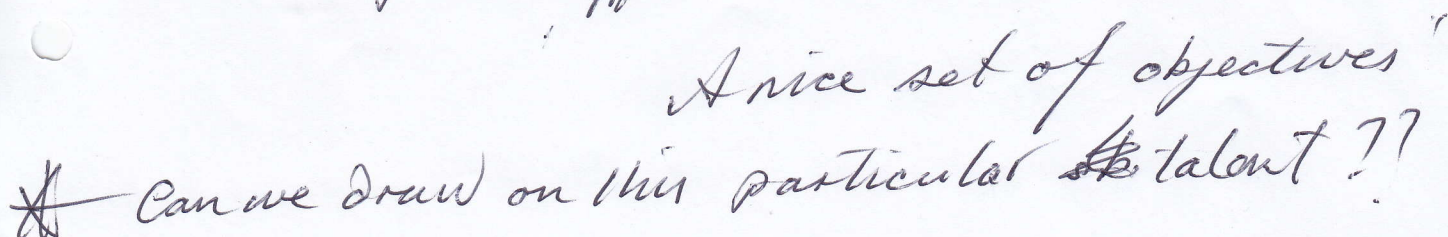 A nice set of objectives
Can we draw on this particular talent ??